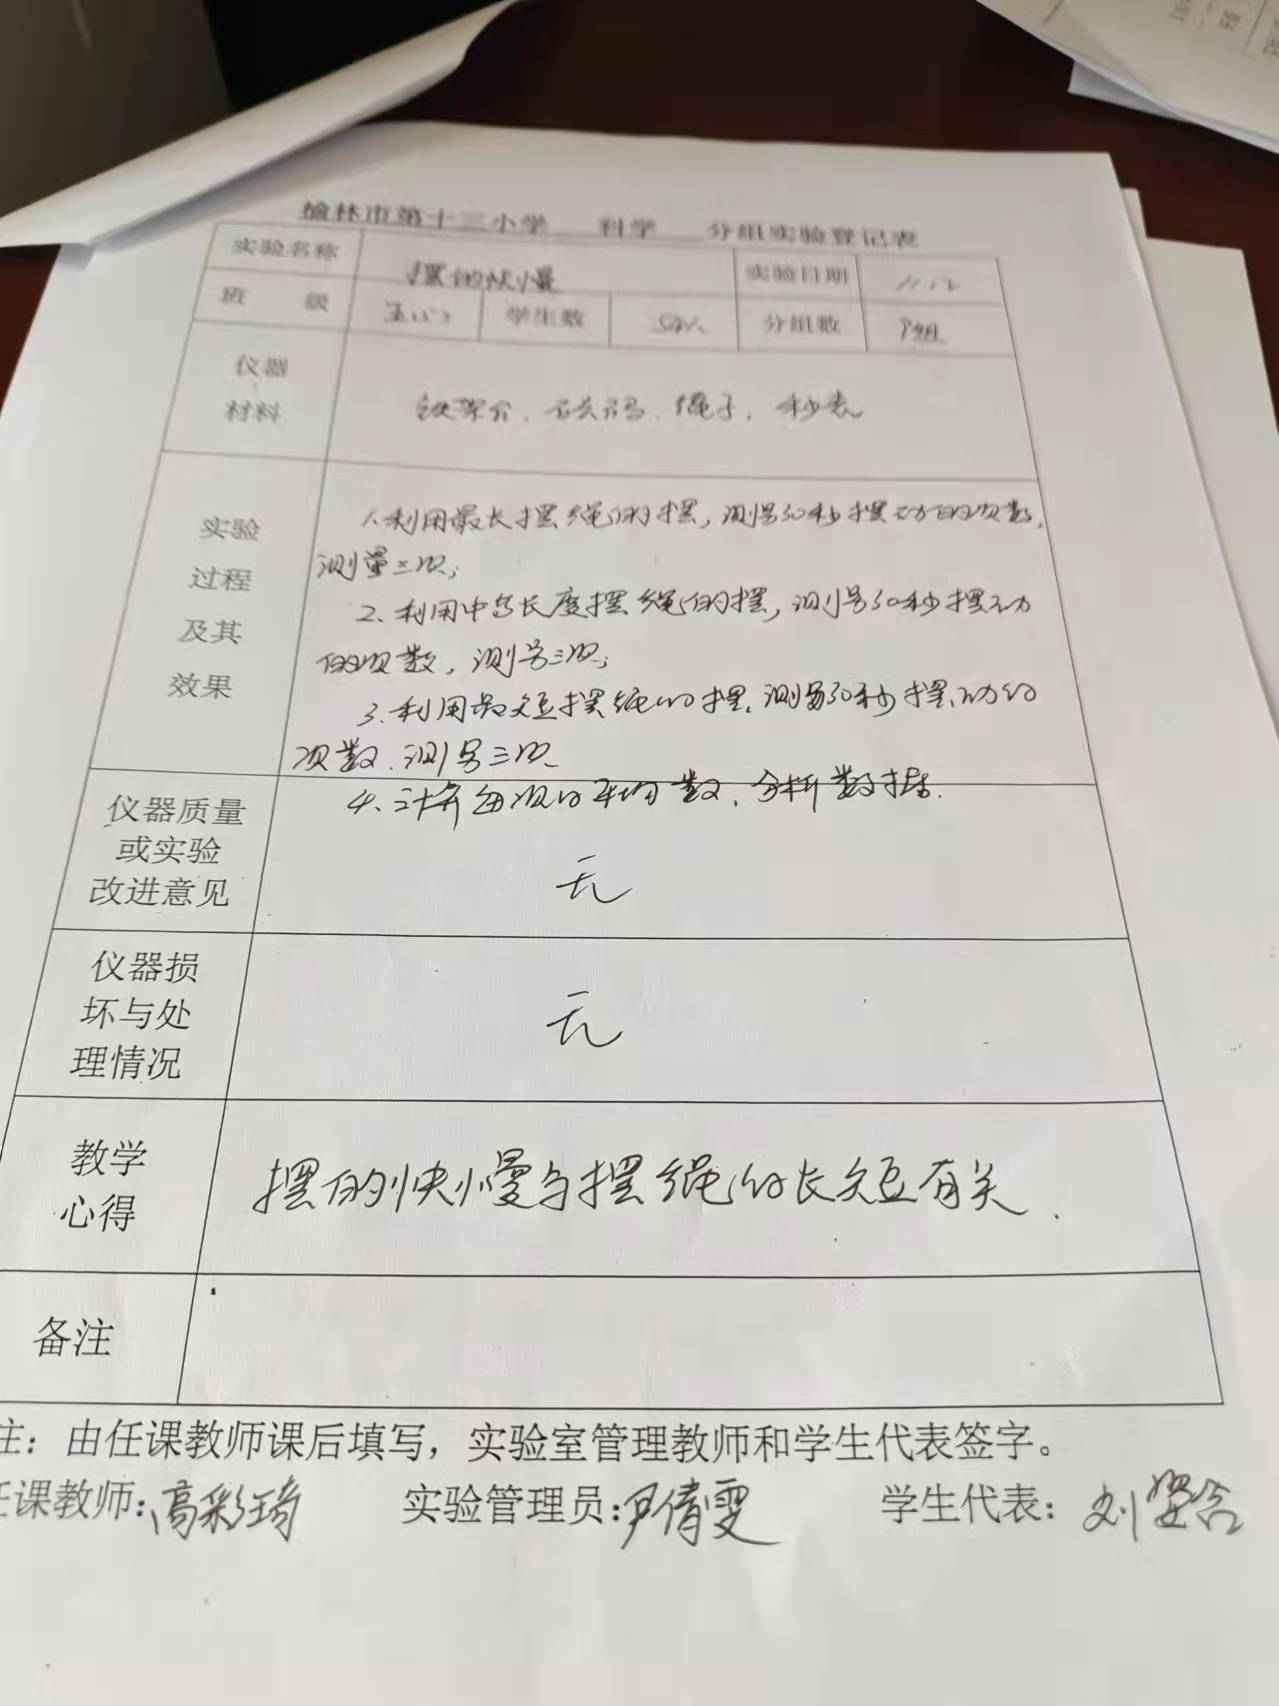 榆林市第十三小学 科学 分组实验登记表
实验名称 摆的快慢 实验日期 11.12
班 级 学生数 分组数
仪器
材料
铁架台、砝码、绳子、秒表
实验
过程
及其
效果
1.利用最长摆绳的摆,测量30秒摆动的次数,
测量三次;
2、利用中等长度摆绳的摆,测量30秒摆动
的次数,测量三次;
3、利用最短摆绳的摆,测量30秒摆动的
次数、测量三次、
4、计算每次的平均数、分析数据.
仪器质量
或实验
改进意见
无
仪器损
坏与处
理情况
无
教学
心得
摆的快慢与摆绳的长短有关、
备注
注:由任课教师课后填写,实验室管理教师和学生代表签字。
任课教师:高彩琦 实验管理员:尹倩雯 学生代表:刘